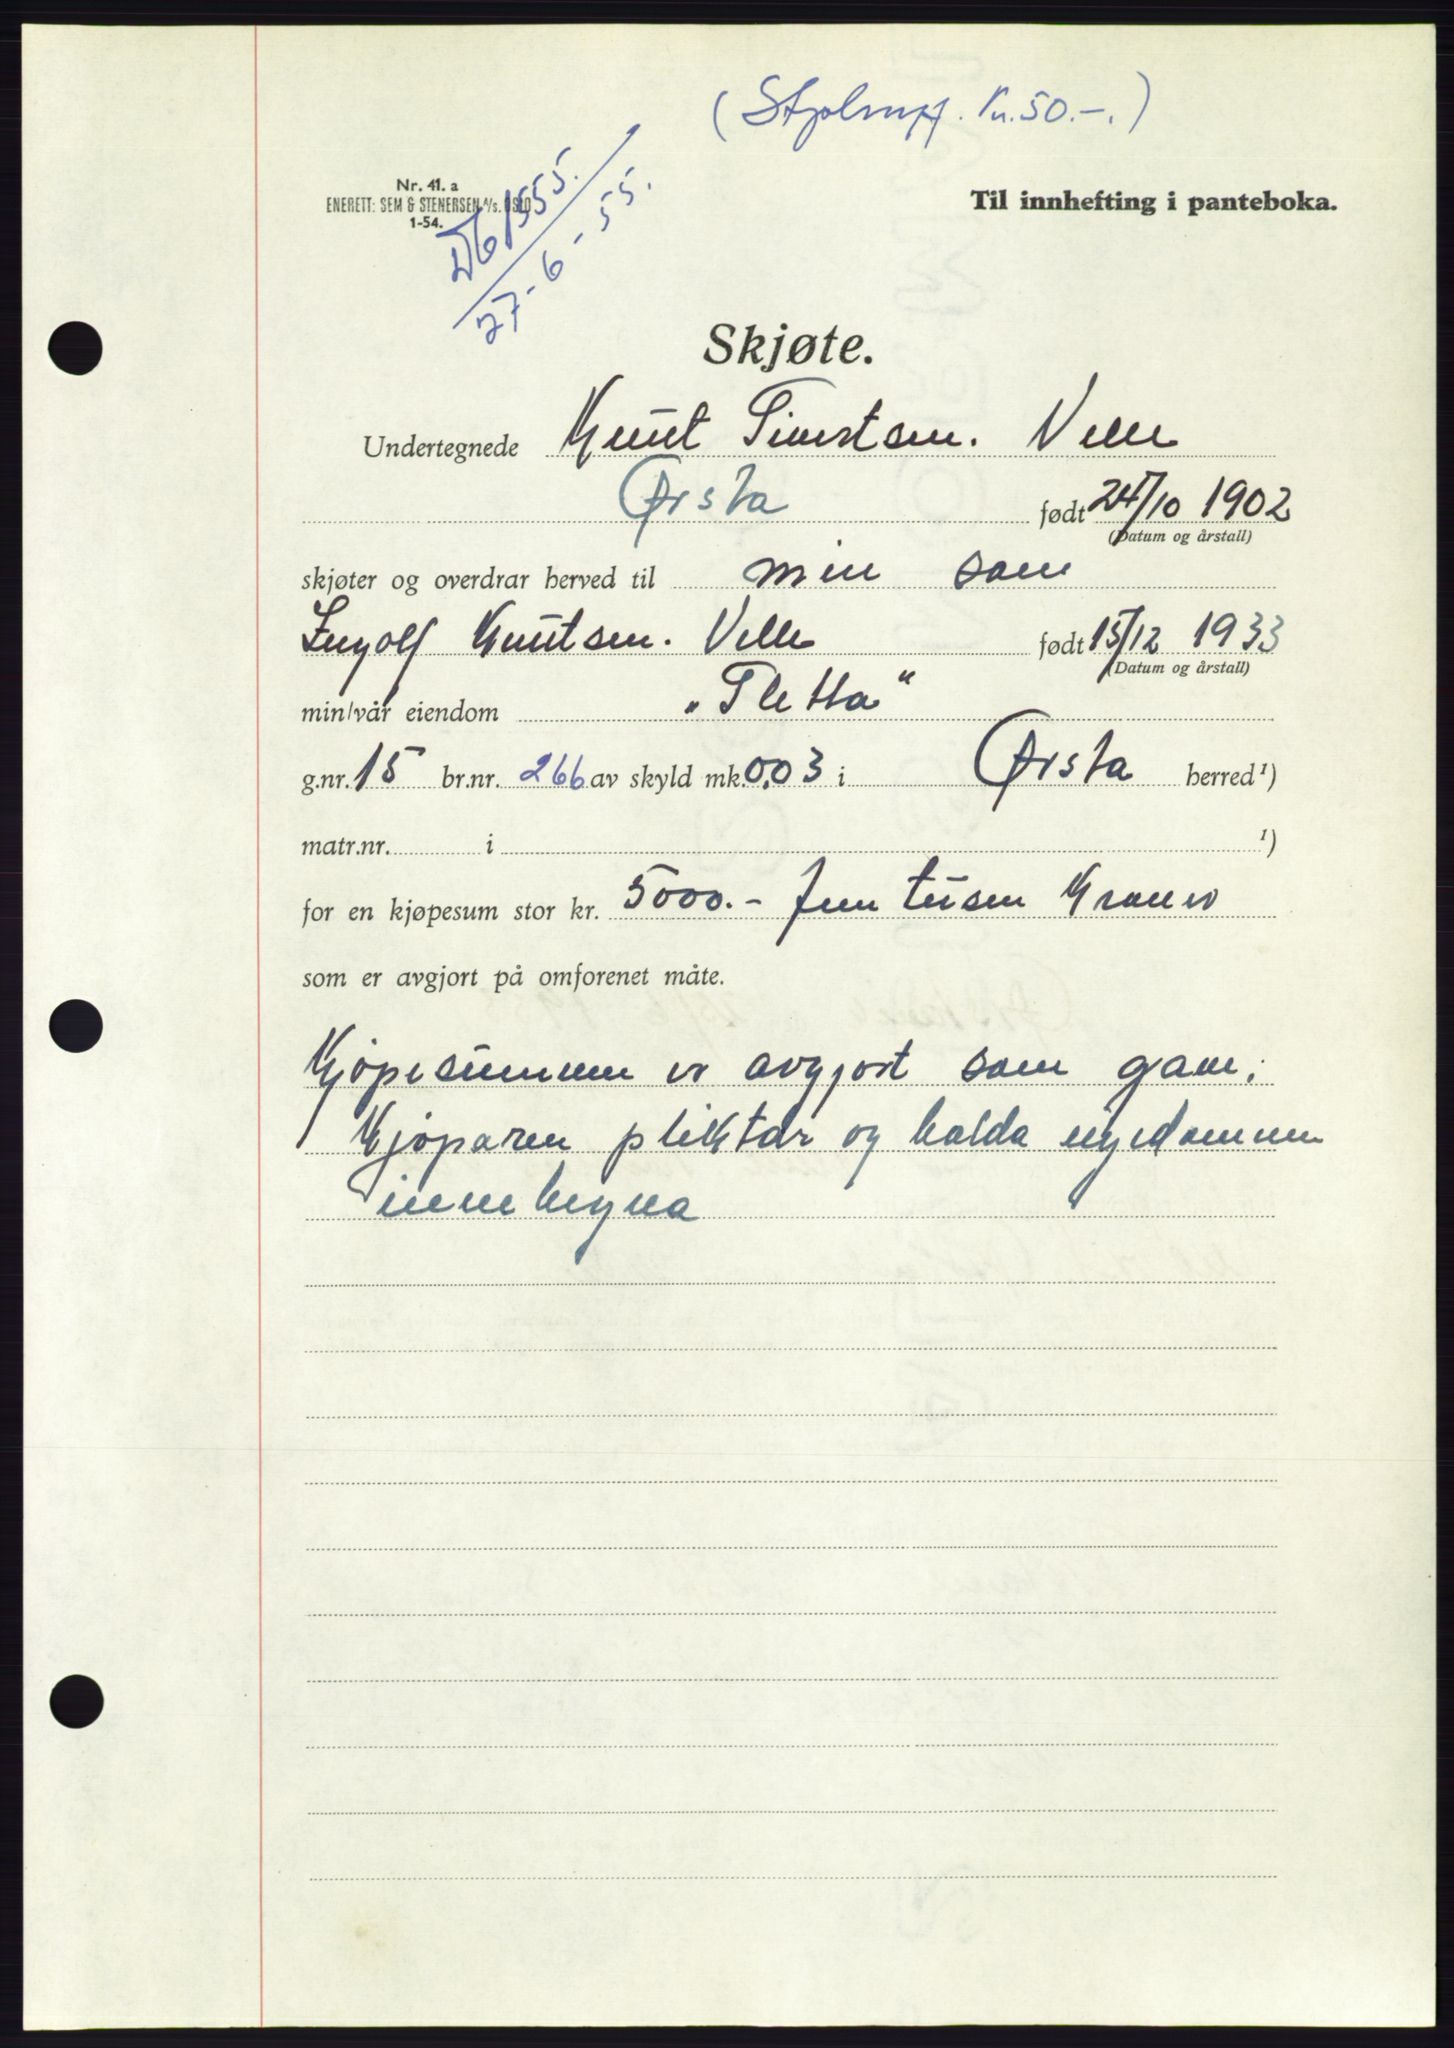 ( Stplmpf. Kr. 50.-. )
Nr. 41. a
ENERETT: SEM & STENERSEN A/S. OSLO
1-54.
1555.
27-6-55.
Til innhefting i panteboka.
Skjøte.
Undertegnede Knut Velle
Ørsta født 24/10 1902
(Datum og årstall)
skjøter og overdrar herved til min son
Ingolf Knutsen. Velle født 15/12 1933
(Datum og årstall)
min/vår eiendom "Sletta"
g.nr. 15 br.nr. 266 av skyld mk. 0,03 i Ørsta herred ¹)
matr.nr. i ¹)
for en kjøpesum stor kr. 5000.- fem tusen Kroner
som er avgjort på omforenet måte.
Kjøpesummen er avgjort som gave.
Kjøparen pliktar og halda eigedommen
innehegna